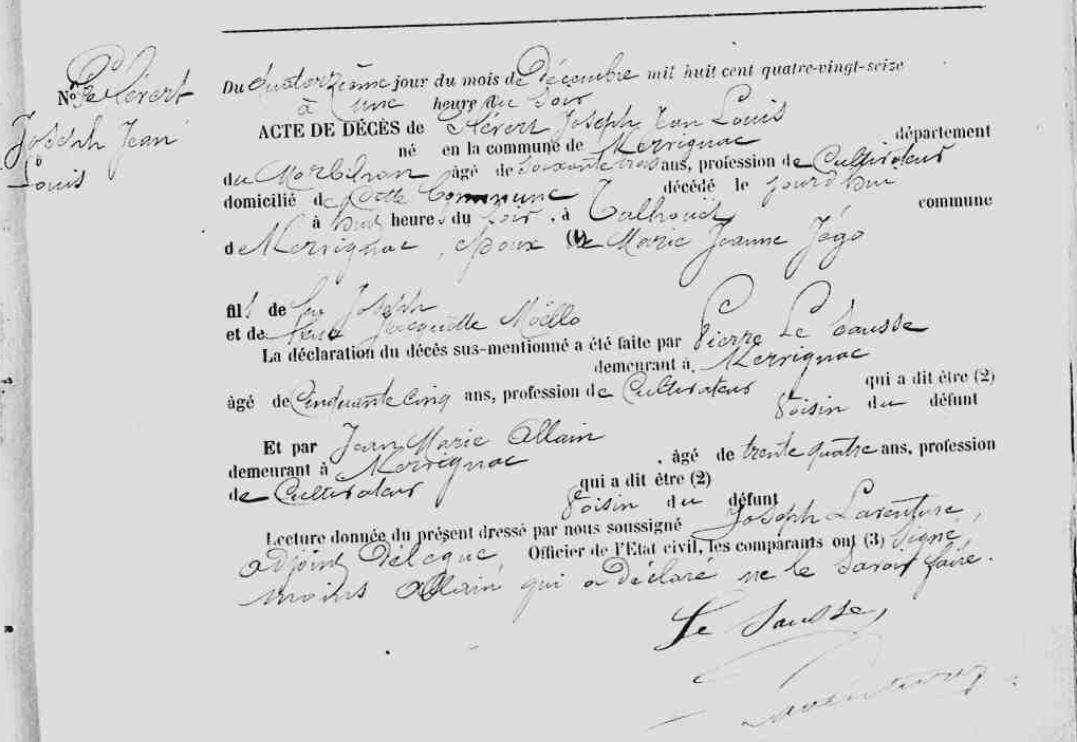 Nº Clérert
Joseph Jean
Louis
Du quatorzième jour du mois de Décembre mil huit cent quatre-vingt-seize
à une heure du soir
ACTE DE DÉCÈS de Clérert Joseph Jean Louis
né en la commune de Merrignac département
du Morbihan âgé de soixante trois ans, profession de Cultivateur
domicilié de Cette Commune décédé le jourd'hui
à huit heures du soir, à Talhouët commune
de Merrignac, époux (1) de Marie Jeanne Jégo
fils de feu Joseph
et de feue Jacquette Moëllo
La déclaration du décès sus-mentionné a été faite par Pierre Le Sausse
demeurant à Merrignac
âgé de Cinquante cinq ans, profession de Cultivateur qui a dit être (2)
Voisin du défunt
Et par Jean Marie Allain
demeurant à Merrignac, âgé de trente quatre ans, profession
de Cultivateur qui a dit être (2)
Voisin du défunt
Lecture donnée du présent dressé par nous soussigné Joseph Laventure,
adjoint Délégué Officier de l'Etat civil, les comparants ont (3) signé,
moins Allain qui a déclaré ne le savoir faire.
Le Sausse,
Laventure